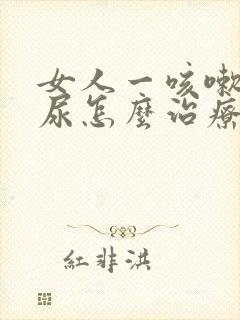 女人一咳嗽
尿怎麼治療
紅非洪